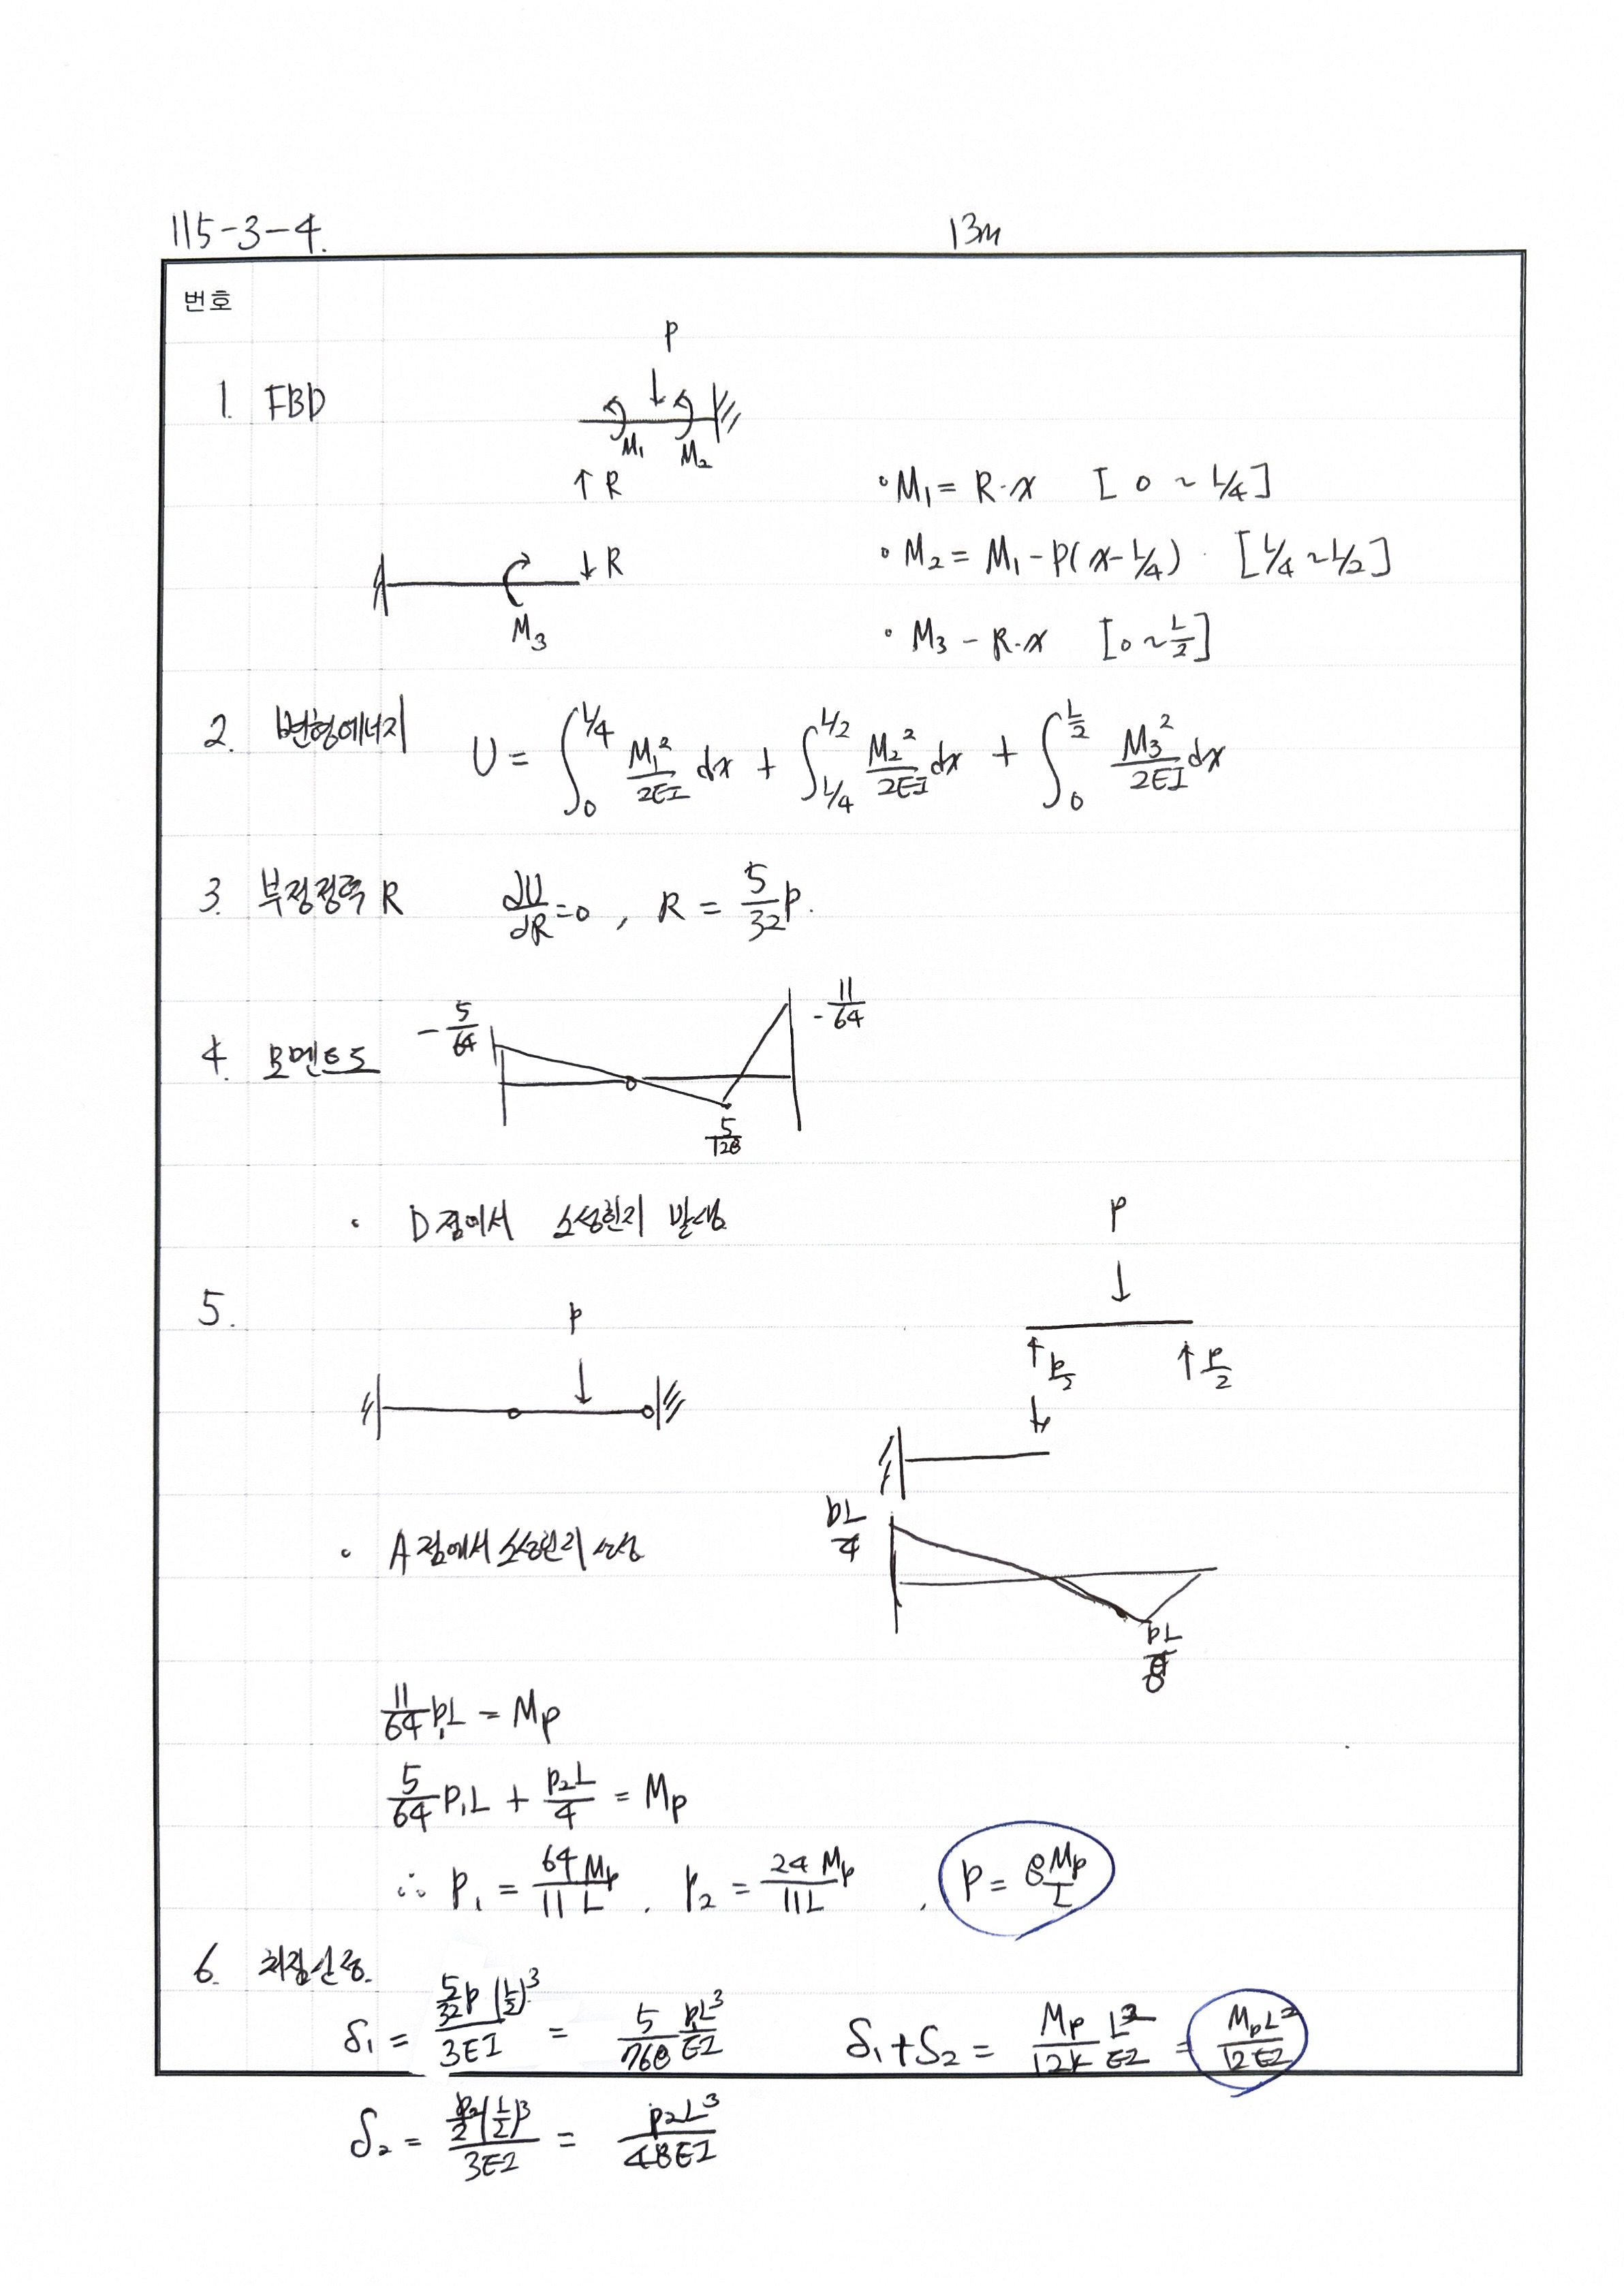 115-3-4.
13m
번호
P
1. FBD
M₁ M₂
↑ R
• M₁ = R·x [ 0 ~ L/4 ]
• M₂ = M₁ - P(x - L/4) · [L/4 ~ L/2]
↓ R
M₃
• M₃ - R·x [0 ~ L/2]
2. 변형에너지 U = ∫₀^{L/4} M₁²/2EI dx + ∫_{L/4}^{L/2} M₂²/2EI dx + ∫₀^{L/2} M₃²/2EI dx
3. 부정정력 R dU/dR = 0 , R = 5/32 P.
4. 모멘트도
- 5/64
- 11/64
5/128
• D점에서 소성힌지 발생
5.
P
P
↑ P/2 ↑ P/2
• A점에서 소성힌지 생성
PL/4
PL/8
11/64 P₁L = Mp
5/64 P₁L + P₂L/4 = Mp
∴ P₁ = 64 Mp/11 L . P₂ = 24 Mp/11L , P = 8Mp/L
6. 처짐산정.
δ₁ = 5/32 P (L/2)³/3EI = 5/768 P₁L³/EI
δ₁ + δ₂ = Mp/12 L²/EI = MpL²/12EI
δ₂ = P₂/2 (L/2)³/3EI = P₂L³/48EI